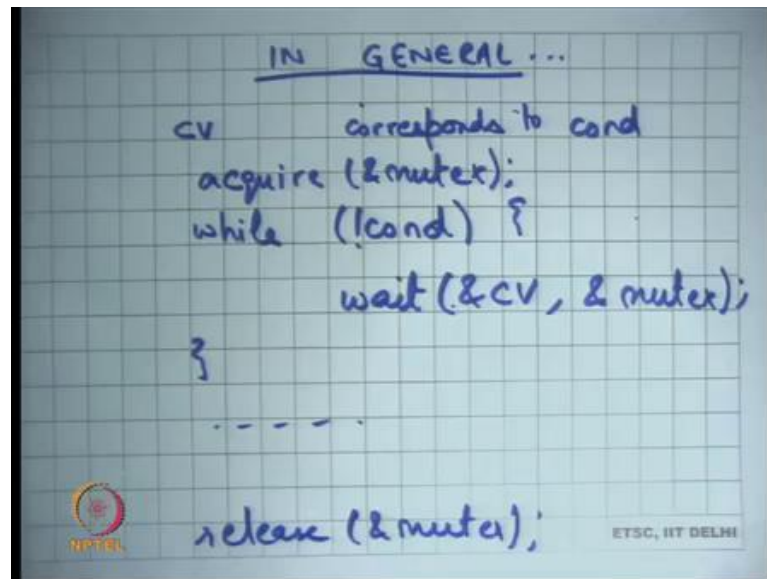 IN GENERAL ...
CV corresponds to cond
acquire (&mutex);
while (!cond) {
wait (&CV, &mutex);
}
- - - - .
release (&mutex);
NPTEL
ETSC, IIT DELHI